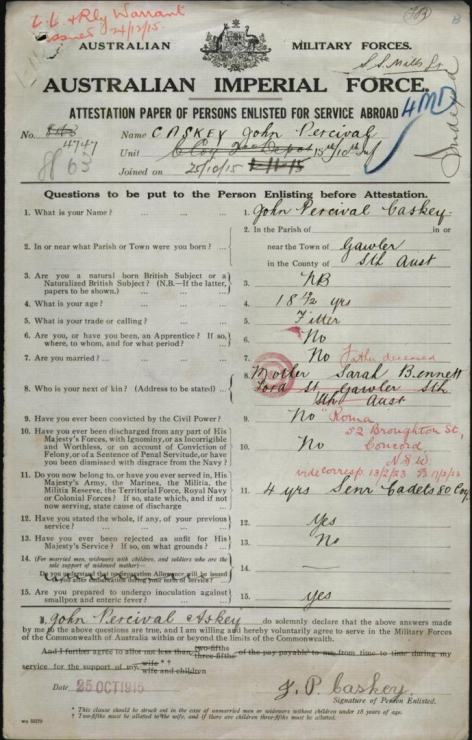 L.L. & Rly Warrant
issued 24/12/15.
AUSTRALIAN MILITARY FORCES.
AUSTRALIAN IMPERIAL FORCE.
ATTESTATION PAPER OF PERSONS ENLISTED FOR SERVICE ABROAD
4 MD
Indexed
No. 4747
Name CASKEY John Percival
Unit
Joined on 25/10/15
Questions to be put to the Person Enlisting before Attestation.
1. What is your Name? ... ... ... 1. John Percival Caskey.
2. In or near what Parish or Town were you born? ... 2. In the Parish of in or
near the Town of Gawler
in the County of Sth Aust
3. Are you a natural born British Subject or a
Naturalized British Subject? (N.B.—If the latter,
papers to be shown.) 3. NB
4. What is your age? ... ... ... 4. 18 6/12 yrs
5. What is your trade or calling? ... ... 5. Fitter
6. Are you, or have you been, an Apprentice? If so,
where, to whom, and for what period? ... 6. No
7. Are you married? ... ... ... 7. No Father deceased
8. Who is your next of kin? (Address to be stated) ... 8. Mother Sarah Bennett
St Gawler Sth
Sth Aust
9. Have you ever been convicted by the Civil Power? 9. No
"Roma"
52 Broughton St,
Concord
N.S.W.
vide corresp. 13/2/23
10. Have you ever been discharged from any part of His
Majesty's Forces, with Ignominy, or as Incorrigible
and Worthless, or on account of Conviction of
Felony, or of a Sentence of Penal Servitude, or have
you been dismissed with disgrace from the Navy? 10. No
11. Do you now belong to, or have you ever served in, His
Majesty's Army, the Marines, the Militia, the
Militia Reserve, the Territorial Force, Royal Navy
or Colonial Forces? If so, state which, and if not
now serving, state cause of discharge 11. 4 yrs Senr Cadets 80 Coy
12. Have you stated the whole, if any, of your previous
service? ... ... ... 12. Yes
13. Have you ever been rejected as unfit for His
Majesty's Service? If so, on what grounds? ... 13. No
14. (For married men, widowers with children, and soldiers who are the
sole support of widowed mother)—
Do you understand that no Separation Allowance will be issued
to you after embarkation during your term of service? 14. —
15. Are you prepared to undergo inoculation against
smallpox and enteric fever? ... ... 15. yes
I, John Percival Caskey do solemnly declare that the above answers made
by me to the above questions are true, and I am willing and hereby voluntarily agree to serve in the Military Forces
of the Commonwealth of Australia within or beyond the limits of the Commonwealth.
And I further agree to allot not less than two-fifths three-fifths of the pay payable to me from time to time during my
service for the support of my wife * †
wife and children
Date 25 OCT 1915
J. P. Caskey.
Signature of Person Enlisted.
* This clause should be struck out in the case of unmarried men or widowers without children under 18 years of age.
† Two-fifths must be allotted to the wife, and if there are children three-fifths must be allotted.